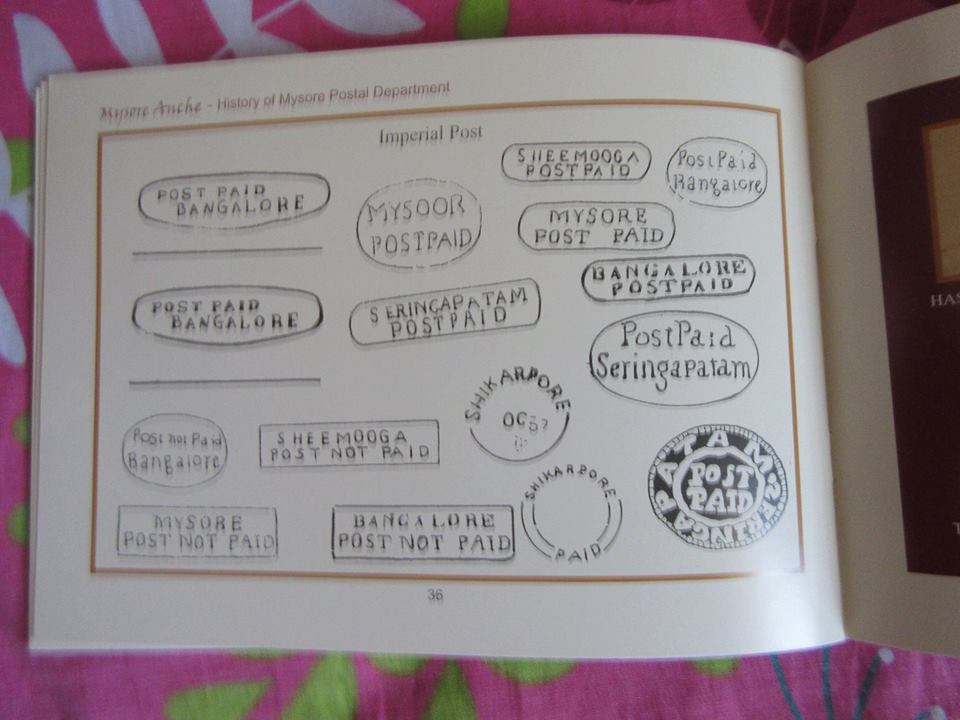 Mysore Anche - History of Mysore Postal Department
Imperial Post
POST PAID
BANGALORE
MYSOOR
POSTPAID
SHEEMOOGA
POSTPAID
PostPaid
Bangalore
MYSORE
POST PAID
BANGALORE
POSTPAID
POST PAID
BANGALORE
SERINGAPATAM
POSTPAID
PostPaid
Seringapatam
SHIKARPORE
Post not Paid
Bangalore
SHEEMOOGA
POST NOT PAID
SHIKARPORE
PAID
SERINGAPATAM
POST
PAID
MYSORE
POST NOT PAID
BANGALORE
POST NOT PAID
36
HAS